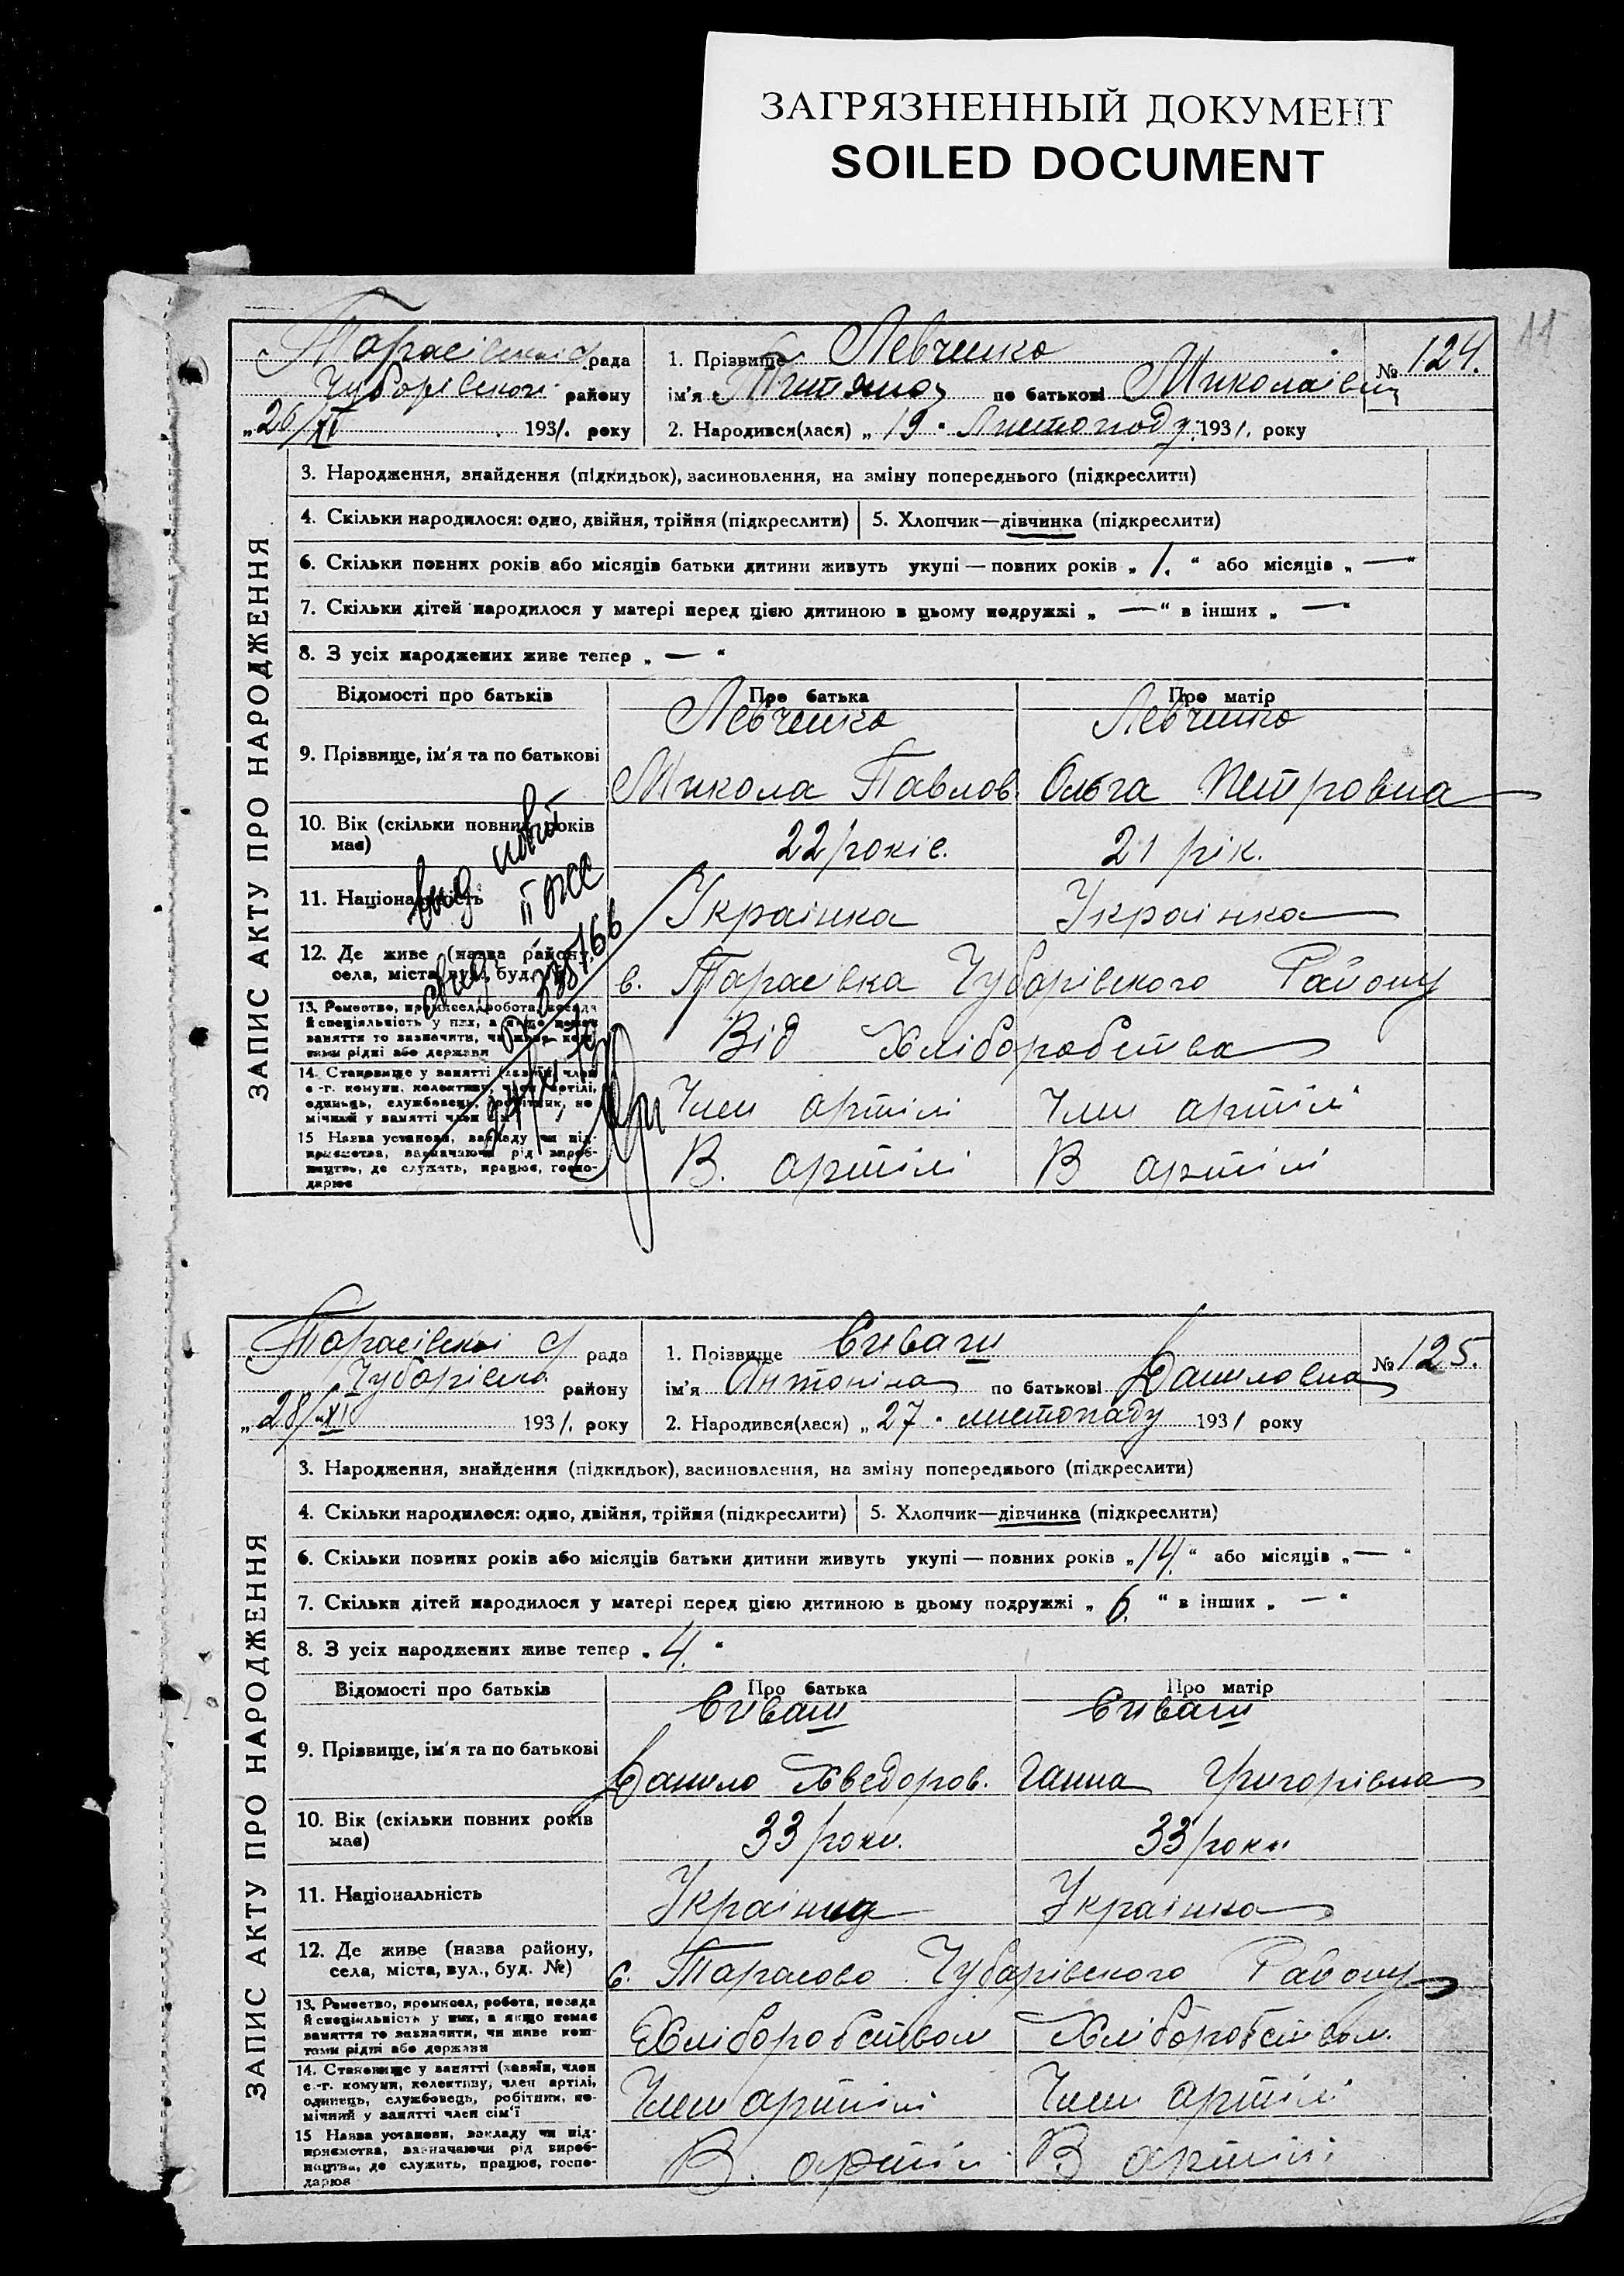 ЗАГРЯЗНЕННЫЙ ДОКУМЕНТ
SOILED DOCUMENT
11
ЗАПИС АКТУ ПРО НАРОДЖЕННЯ
Тарасівської с/рада
Чубарівського району
„26/XI 1931. року
1. Прізвище Левченко
ім'я Титяна по батькові Миколаівна
№ 124.
2. Народився(лася) „19. Листопаду 1931. року
3. Народження, знайдення (підкидьок), засиновлення, на зміну попереднього (підкреслити)
4. Скільки народилося: одно, двійня, трійня (підкреслити) 5. Хлопчик—дівчинка (підкреслити)
6. Скільки повних років або місяців батьки дитини живуть укупі — повних років „1.“ або місяців „—“
7. Скільки дітей народилося у матері перед цією дитиною в цьому подружжі „—“ в інших „—“
8. З усіх народжених живе тепер „—“
Відомості про батьків Про батька Про матір
Левченко Левченко
9. Прізвище, ім'я та по батькові
Микола Павлов. Ольга Петровна
10. Вік (скільки повних років має) 22 років. 21 рік.
11. Національність Українка Українка
12. Де живе (назва району, села, міста, вул., буд. №)
в. Тарасівка Чубарівского Району
13. Ремество, промисел, робота, посада й спеціяльність у них, а якщо немає заняття то зазначити, чи живе коштами рідні або держави
Від Хліборобства
14. Становище у занятті (хазяїн, член с.-г. комуни, колективу, член артілі, одинець, службовець, робітник, помічний у занятті член сім'ї
Член артілі Член артілі
15 Назва установи, закладу чи підприємства, зазначаючи рід виробництва, де служить, працює, господарює
В. артілі В артілі
ЗАПИС АКТУ ПРО НАРОДЖЕННЯ
Тарасівскоі с/ рада
Чубарівско району
„28/XI 1931. року
1. Прізвище Сиваш
ім'я Антоніна по батькові Даниловна
№ 125.
2. Народився(лася) „27. листопаду 1931 року
3. Народження, знайдення (підкидьок), засиновлення, на зміну попереднього (підкреслити)
4. Скільки народилося: одно, двійня, трійня (підкреслити) 5. Хлопчик—дівчинка (підкреслити)
6. Скільки повних років або місяців батьки дитини живуть укупі — повних років „14.“ або місяців „—“
7. Скільки дітей народилося у матері перед цією дитиною в цьому подружжі „6.“ в інших „—“
8. З усіх народжених живе тепер „4.“
Відомості про батьків Про батька Про матір
Сиваш Сиваш
9. Прізвище, ім'я та по батькові
Данило Хведоров. Ганна Григорівна
10. Вік (скільки повних років має) 33 роки. 33 роки
11. Національність Украінец Українка
12. Де живе (назва району, села, міста, вул., буд. №)
с. Тарасово Чубарівского Району
13. Ремество, промисел, робота, посада й спеціяльність у них, а якщо немає заняття то зазначити, чи живе коштами рідні або держави
Хліборобством Хліборобством.
14. Становище у занятті (хазяїн, член с.-г. комуни, колективу, член артілі, одинець, службовець, робітник, помічний у занятті член сім'ї
Член артілі Член артілі
15 Назва установи, закладу чи підприємства, зазначаючи рід виробництва, де служить, працює, господарює
В. артілі В артілі